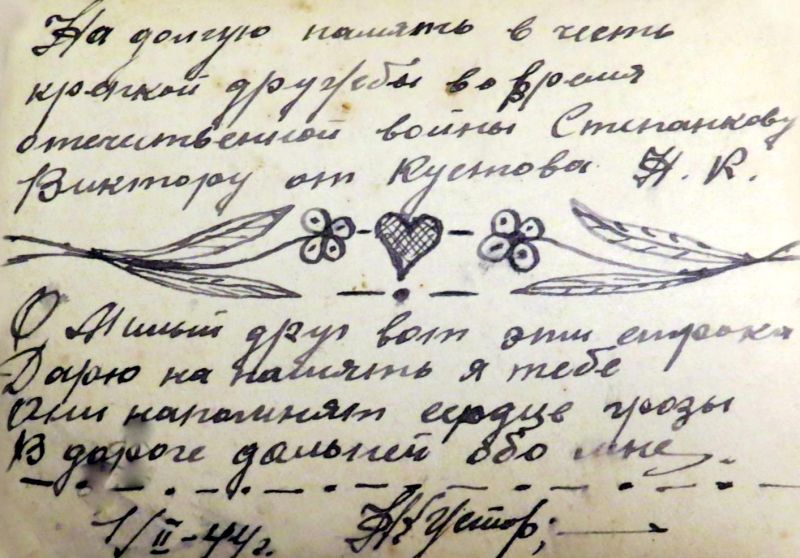 На долгую память в честь
крепкой дружебы во время
отечественной войны Степанкову
Виктору от Кустова Н. К.
О, Милый друг вот эти строки
Дарю на память я тебе
Они напомнят сердце грозы
В дороге дальней обо мне.
1/II-44г. НКустов;